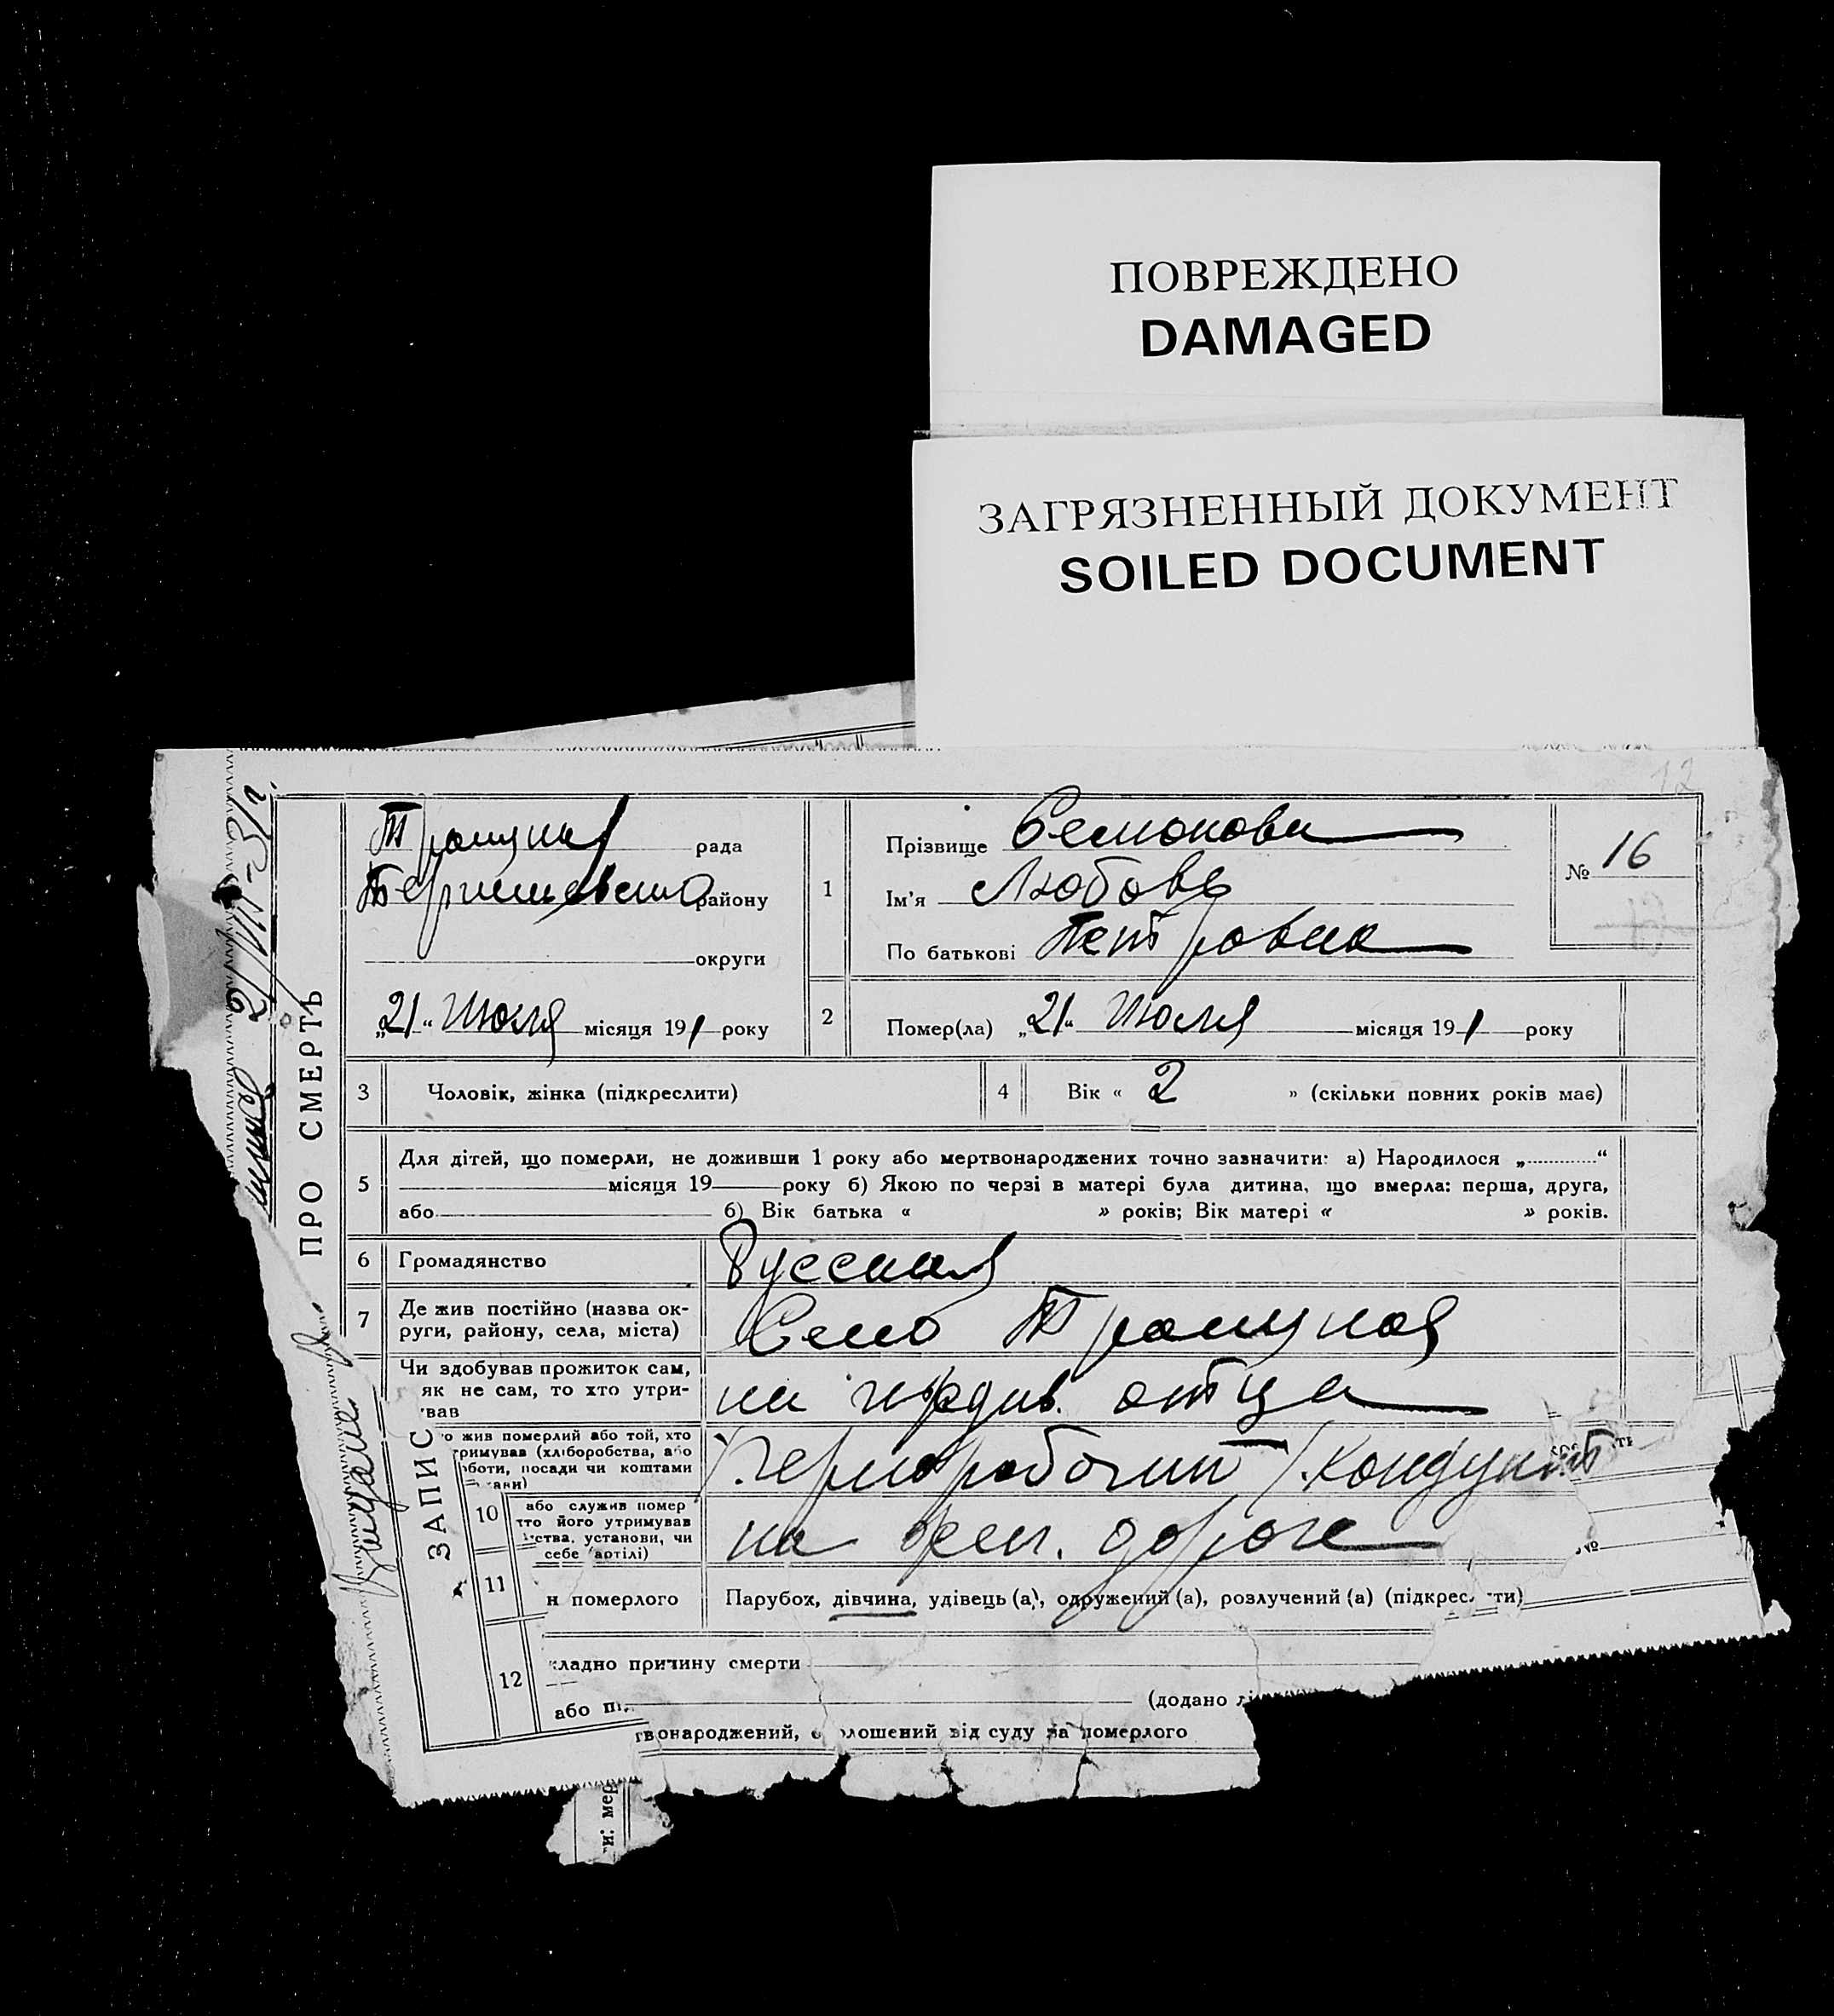 ПОВРЕЖДЕНО
DAMAGED
ЗАГРЯЗНЕННЫЙ ДОКУМЕНТ
SOILED DOCUMENT
12
ЗАПИС ПРО СМЕРТЬ
рада
району
округи
„21“ Июля місяця 191 року
1
Прізвище Семенова
Ім'я Любовь
По батькові Петровна
№ 16
2
Помер(ла) „21“ Июля місяця 191 року
3 Чоловік, жінка (підкреслити)
4 Вік « 2 » (скільки повних років має)
5
Для дітей, що померли, не доживши 1 року або мертвонароджених точно зазначити: а) Народилося „ “
місяця 19 року б) Якою по черзі в матері була дитина, що вмерла: перша, друга,
або б) Вік батька « » років; Вік матері « » років.
6 Громадянство Русская
7 Де жив постійно (назва ок-
руги, району, села, міста)
Село Троицкая
Чи здобував прожиток сам,
як не сам, то хто утри-
вав
на иждив. отца
о жив померлий або той, хто
тримував (хліборобства, або
оботи, посади чи коштами
ави)
Чернорабочий / Кондукт
10
або служив помер
хто його утримував
ства, установи, чи
себе артілі)
на жел. дороге
11
н померлого
Парубох, дівчина, удівець (а), одружений (а), розлучений (а) (підкрес ти)
12
кладно причину смерти
або пі
(додано лі
твонароджений, о олошений від суду за померлого
и: мер